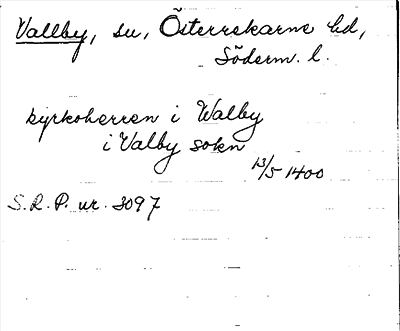 Vallby, sn, Österrekarne hd,
Söderm. l.
kyrkoherren i Walby
i Valby sokn
13/5 1400
S.R.P. nr. 3097